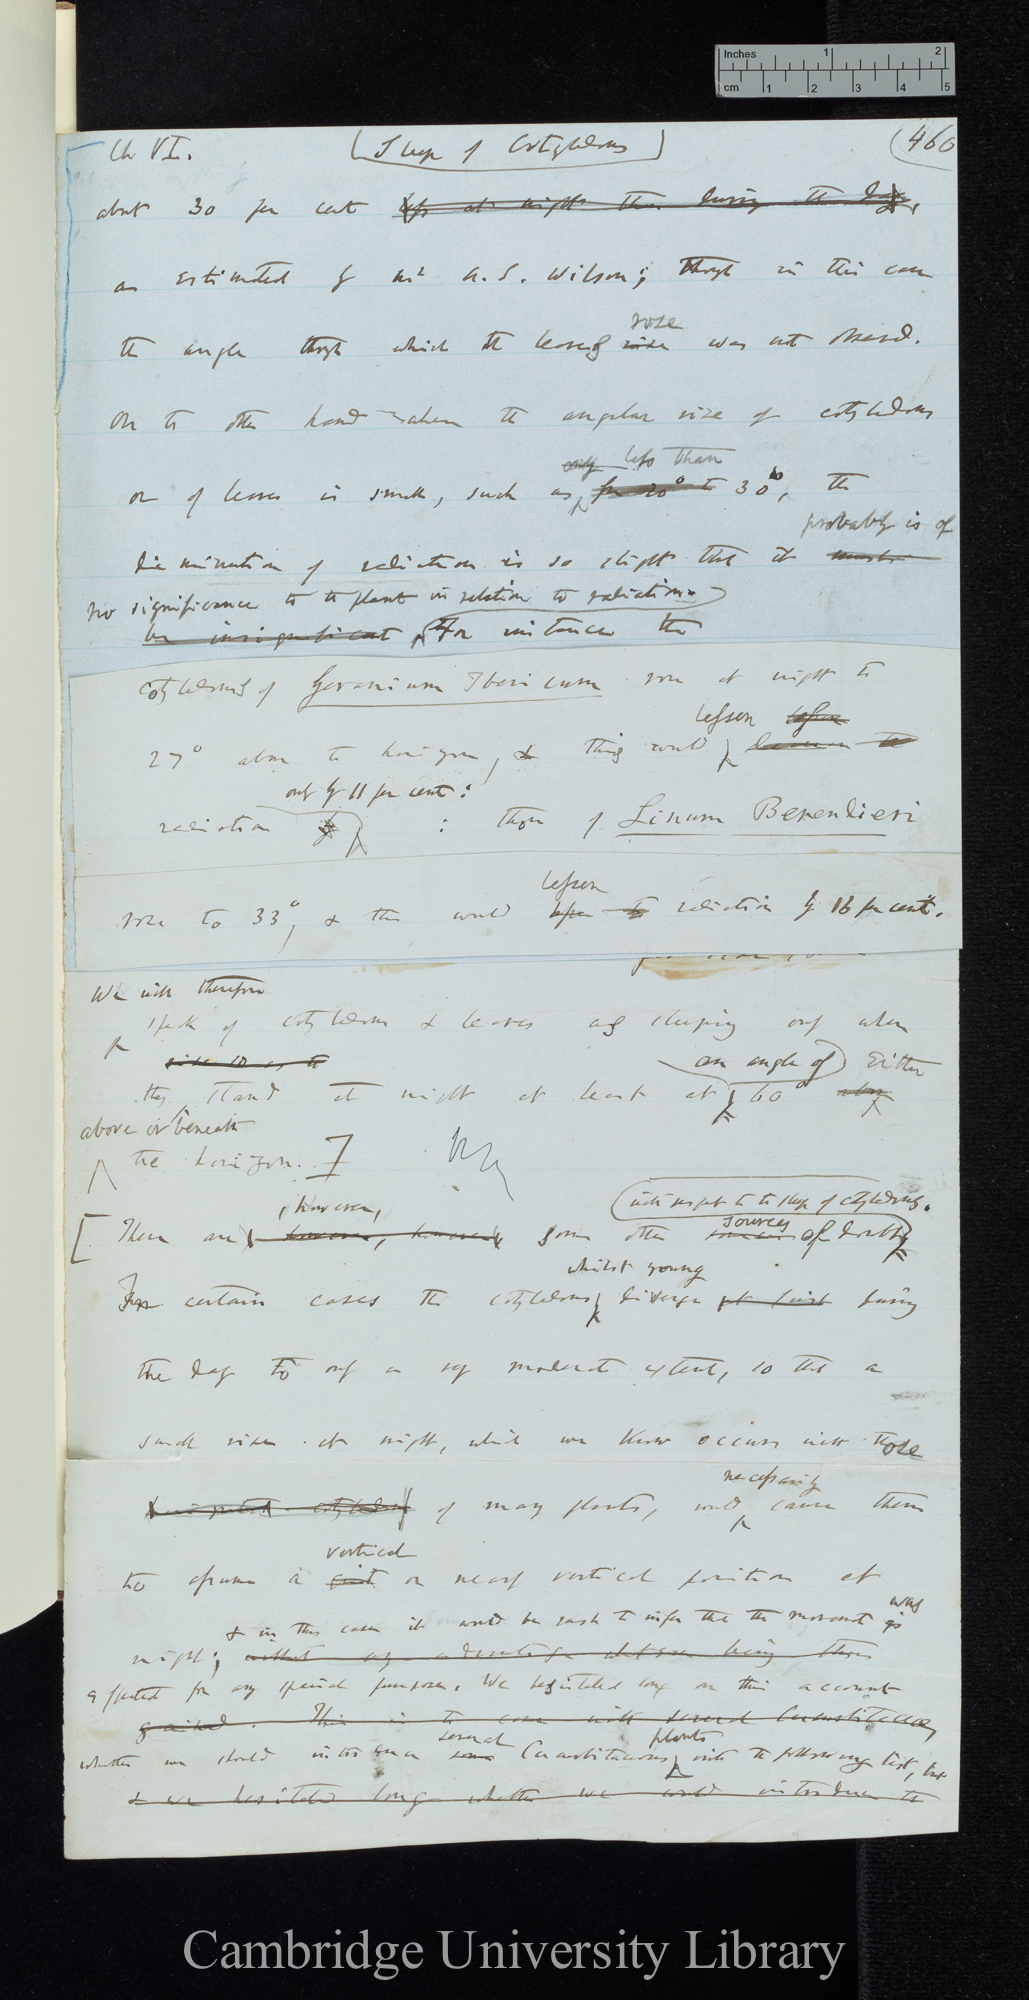 Inches 1 2
cm 1 2 3 4 5
Ch VI. (Sleep of Cotyledons) (460
about 30 per cent less at night than during the day,
as estimated by Mr A. S. Wilson; though in this case
rose
the angle through which the leaves rise was not observed.
On the other hand when the angular rise of cotyledons
only less than
or of leaves is small, such as for 20° to 30°, the
probably is of
diminution of radiation is so slight that it must
no significance to the plant in relation to radiation.
be insignificant For instance the
cotyledons of Geranium Ibericum rose at night to
lessen
27° above the horizon, & this would lessen the
only by 11 per cent:
radiation by : those of Linum Berendieri
lessen
rose to 33°, & this would radiation by 16 per cent.
We will therefore
speak of cotyledons & leaves as sleeping only when
rise so as to
an angle of either
they stand at night at least at 60°
above or beneath
the horizon.]
with respect to the sleep of cotyledons.
, however,
sources
[There are however, however some other sources of doubt
whilst young
In certain cases the cotyledons diverge at first during
the day to only a very moderate extent, so that a
small rise at night, which we know occurs with those
necessarily
cotyledons of many plants, would cause them
vertical
to assume a quite or nearly vertical position at
was
& in this case it would be rash to infer that the movement is
night; without any advantage being thus
effected for any special purpose. We hesitated long on this account
gained. This is the case with several Cucurbitaceae,
several plants
whether we should introduce some Cucurbitaceous with the following list, but
& we hesitated long whether we would introduce the
Cambridge University Library